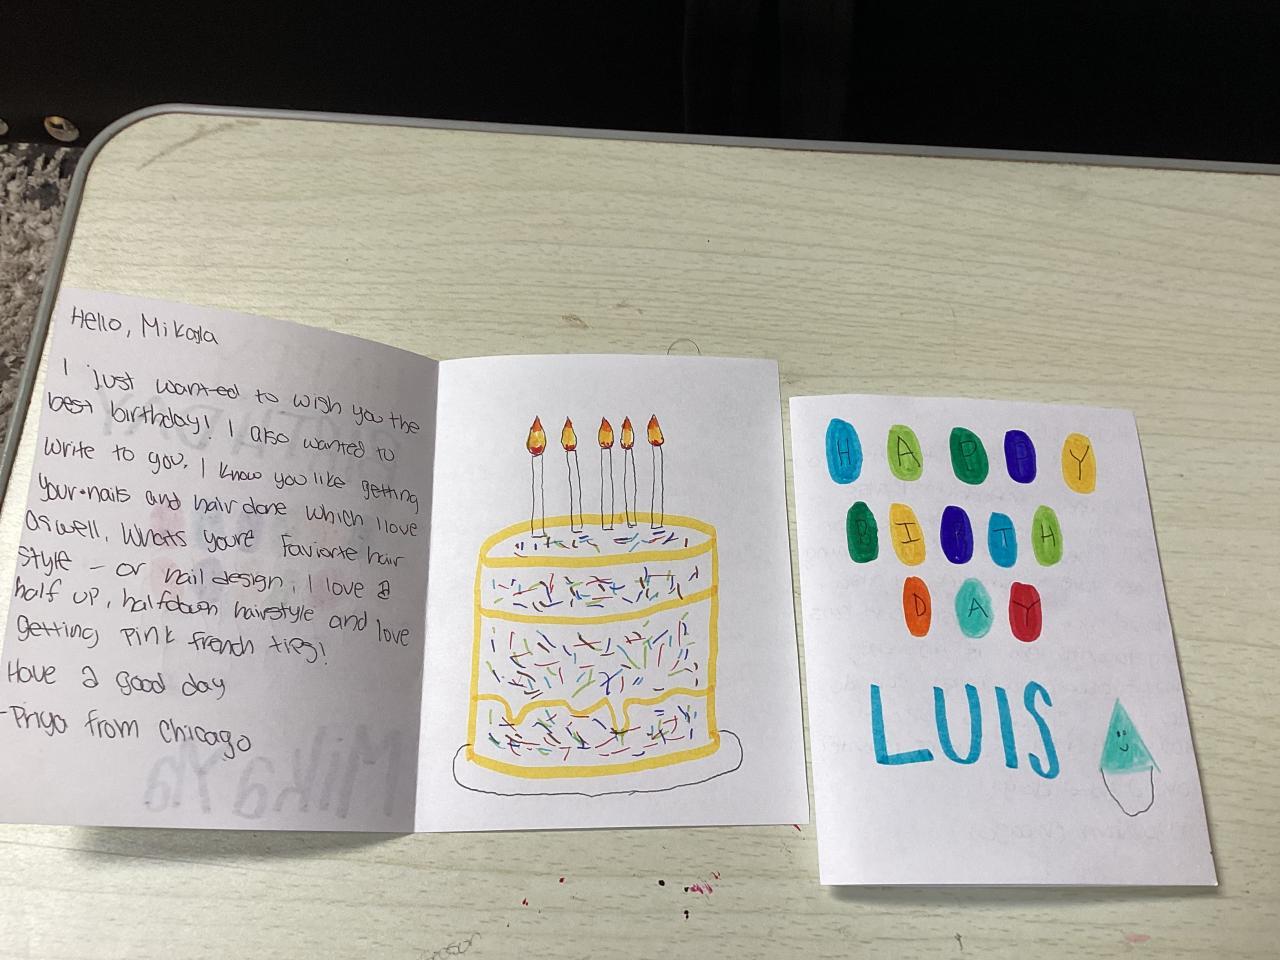 Hello, Mikayla
I just wanted to wish you the
best birthday! I also wanted to
write to you. I know you like getting
your nails and hair done which I love
as well. Whats youre Faviorte hair
style - or nail design, I love a
half up, halfdown hairstyle and love
getting pink french tips!
Have a good day
-Priya from Chicago
HAPPY
BIRTH
DAY
LUIS